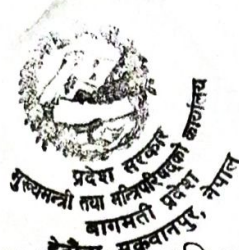 प्रदेश सरकार
मुख्यमन्त्री तथा मन्त्रिपरिषद्को कार्यालय
बागमती प्रदेश
हेटौंडा, मकवानपुर, नेपाल